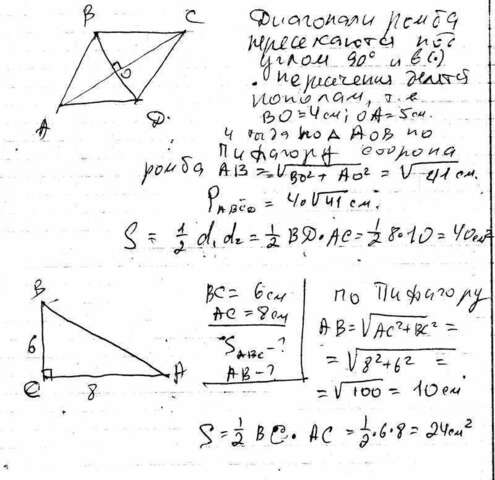 B C
O
A D
Диагонали ромба
пересекаются под
углом 90° и в (·)
пересечения делятся
пополам, т.е
BO = 4см; OA = 5см.
и тогда по Δ AOB по
Пифагору сторона
ромба AB = √BO² + AO² = √41 см.
P_ABCD = 4·√41 см.
S = 1/2 d₁ d₂ = 1/2 BD·AC = 1/2 8·10 = 40см²
B
6
C 8 A
BC = 6см
AC = 8см
S_ABC - ?
AB - ?
по Пифагору
AB = √AC² + BC² =
= √8² + 6² =
= √100 = 10 см
S = 1/2 BC · AC = 1/2 · 6 · 8 = 24см²